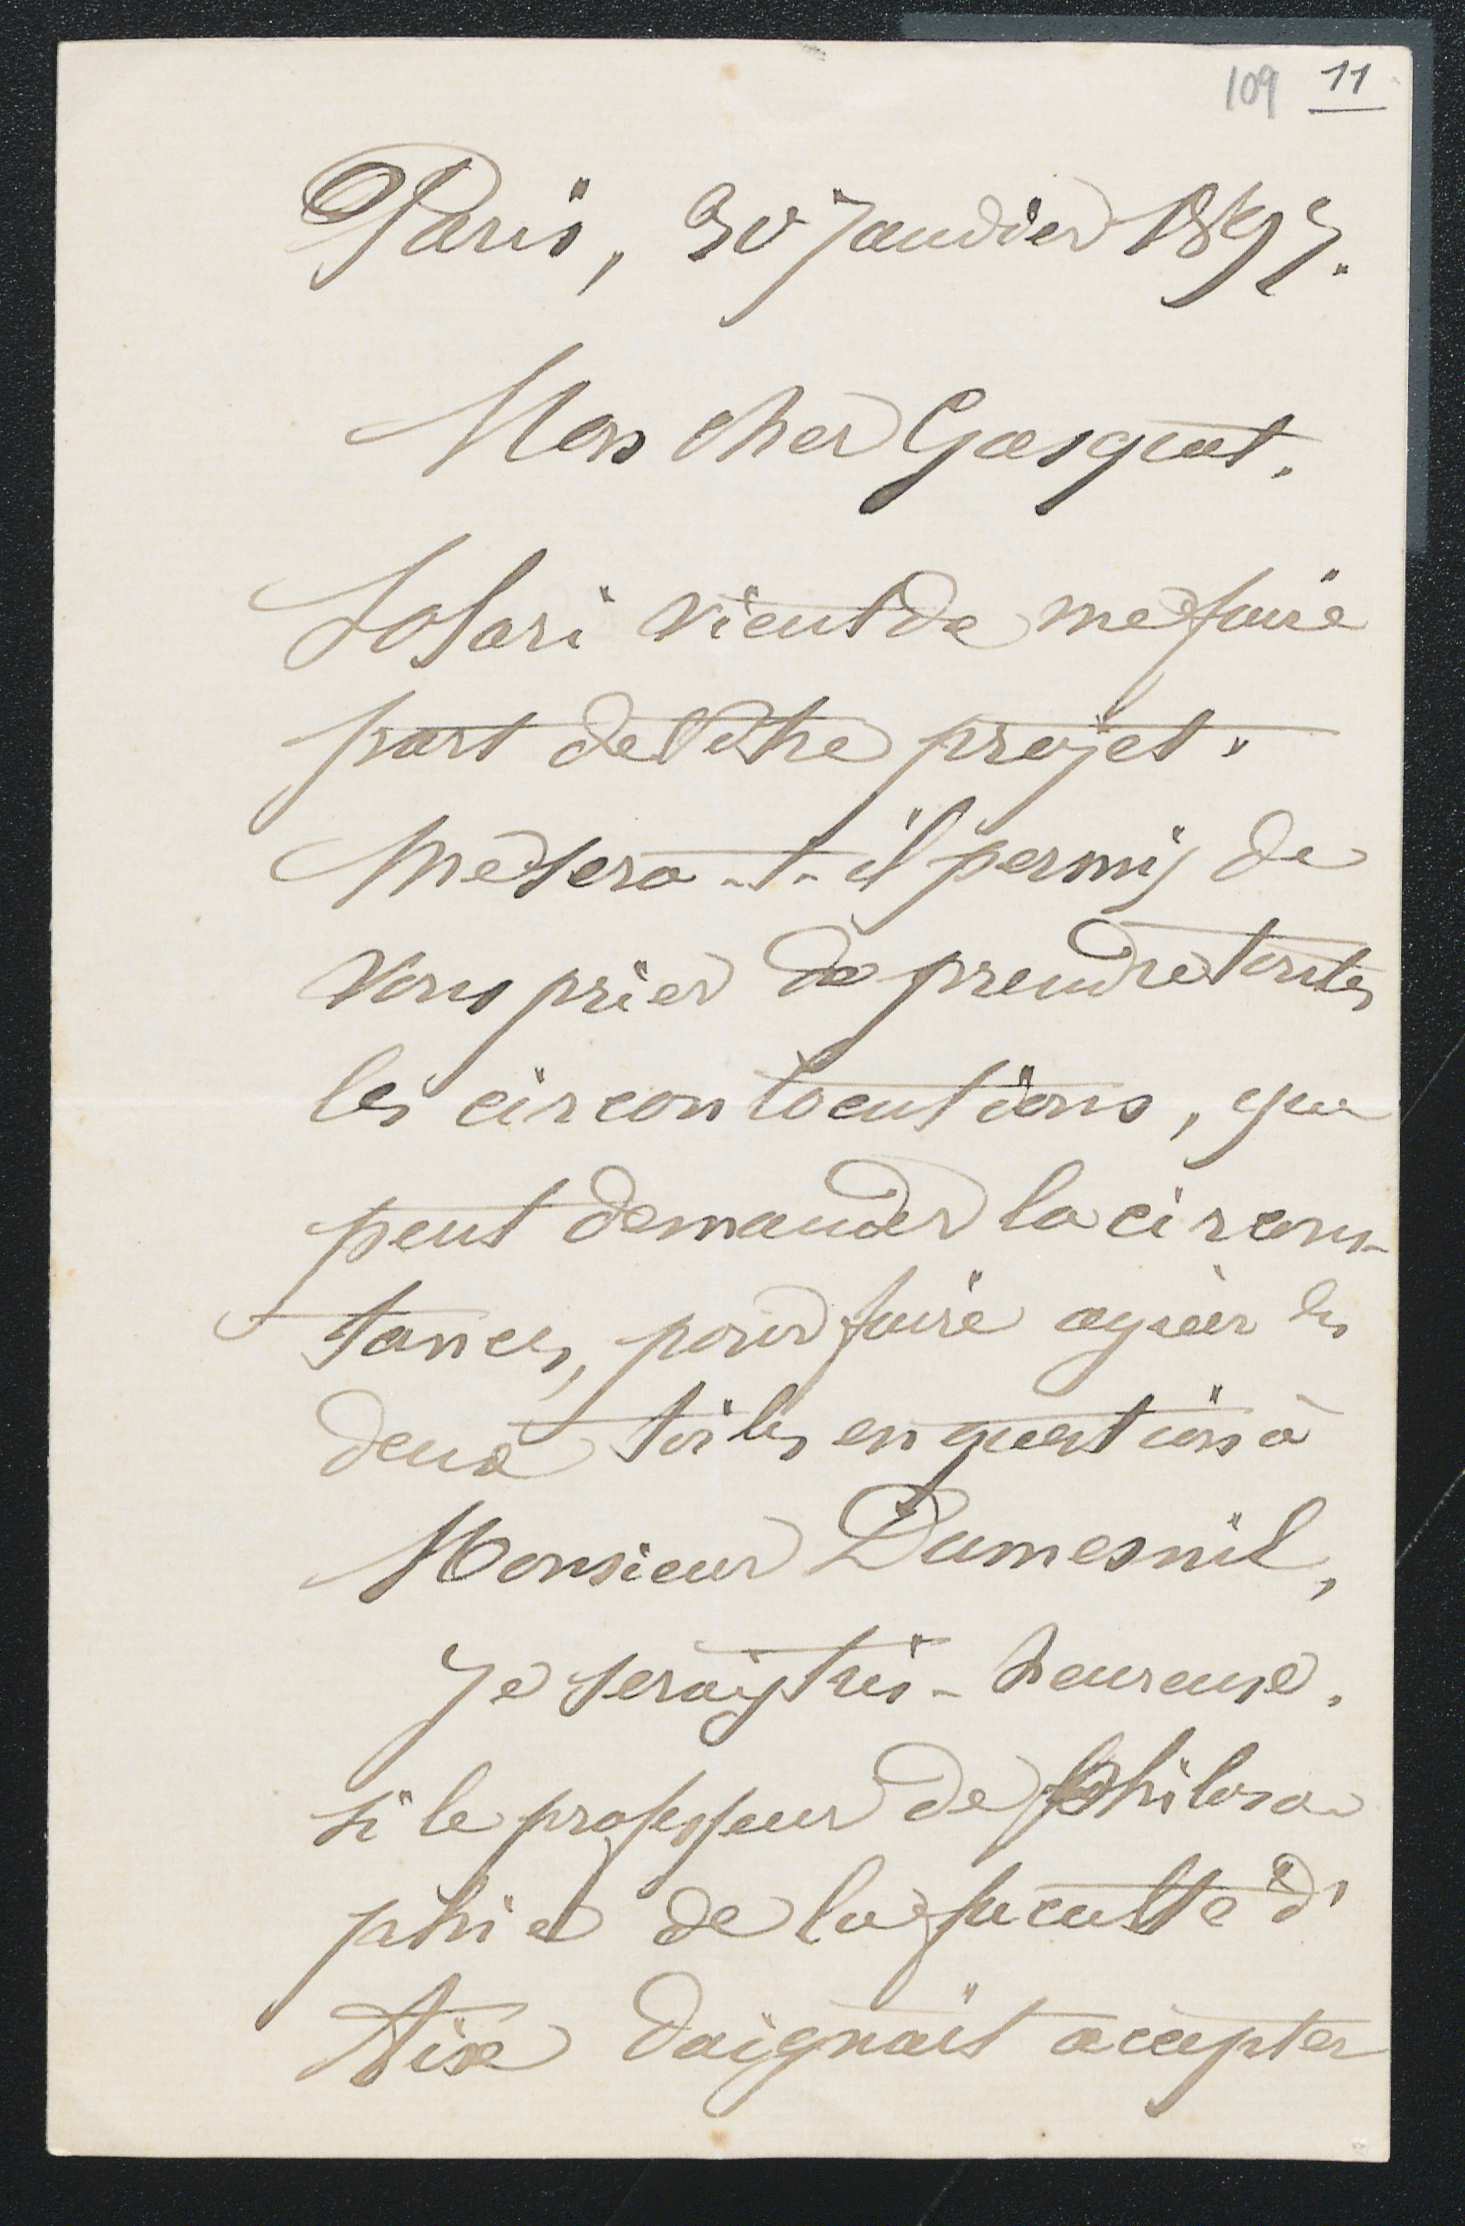 109 11
Paris, 30 Janvier 1897.
Mon cher Gasquet.
Solari vient de me faire
part de Votre projet.
Me sera-t-il permis de
Vous prier de prendre toutes
les circonlocutions, que
peut demander la circons-
tances, pour faire agréér les
deux toiles en question à
Monsieur Dumesnil,
Je serais très-heureux.
si le professeur de philoso-
phie de la faculté d'
Aix daignait accepter